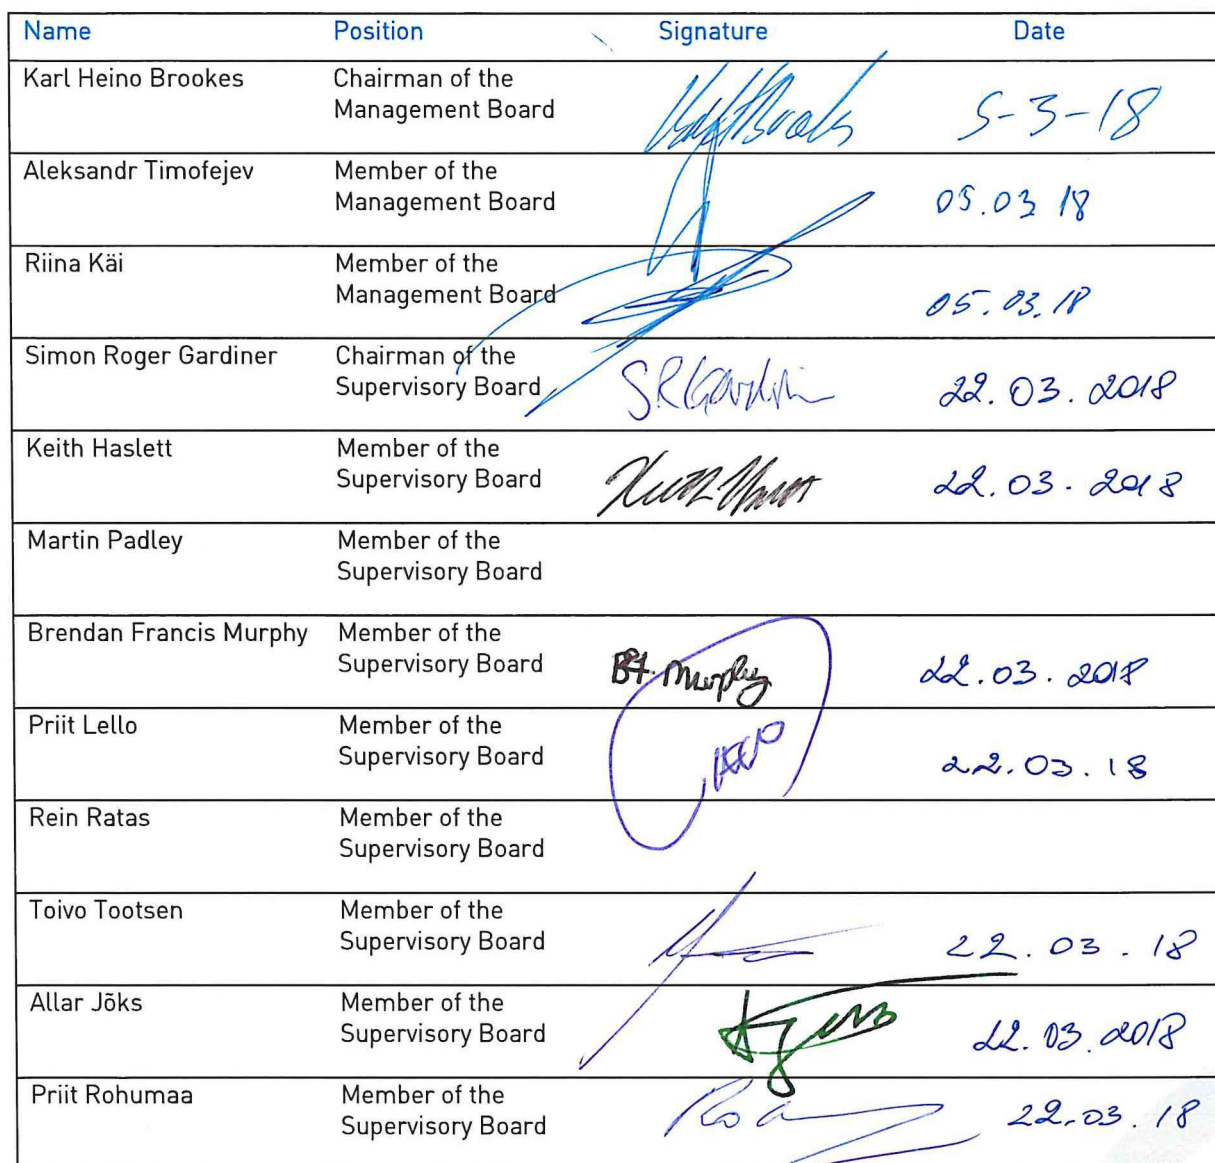 Name Position Signature Date
Karl Heino Brookes Chairman of the
Management Board
5-3-18
Aleksandr Timofejev Member of the
Management Board
05.03 18
Riina Käi Member of the
Management Board
05.03.18
Simon Roger Gardiner Chairman of the
Supervisory Board
S.R.Gardin
22.03.2018
Keith Haslett Member of the
Supervisory Board
22.03.2018
Martin Padley Member of the
Supervisory Board
Brendan Francis Murphy Member of the
Supervisory Board
B.F. Murphy
22.03.2018
Priit Lello Member of the
Supervisory Board
22.03.18
Rein Ratas Member of the
Supervisory Board
Toivo Tootsen Member of the
Supervisory Board
22.03.18
Allar Jõks Member of the
Supervisory Board
22.03.2018
Priit Rohumaa Member of the
Supervisory Board
22.03.18